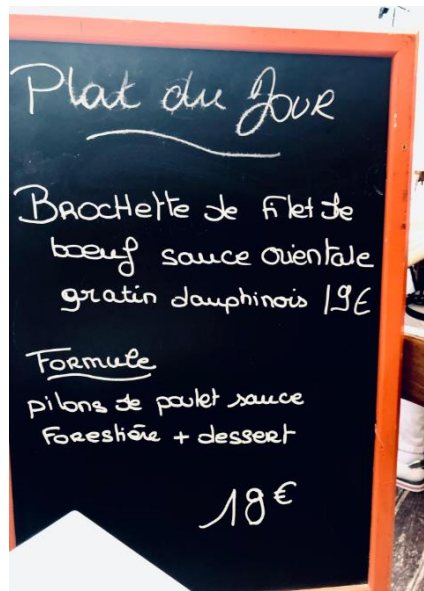 Plat du Jour
Brochette de filet de
boeuf sauce orientale
gratin dauphinois 19€
Formule
pilons de poulet sauce
Forestière + dessert
18€